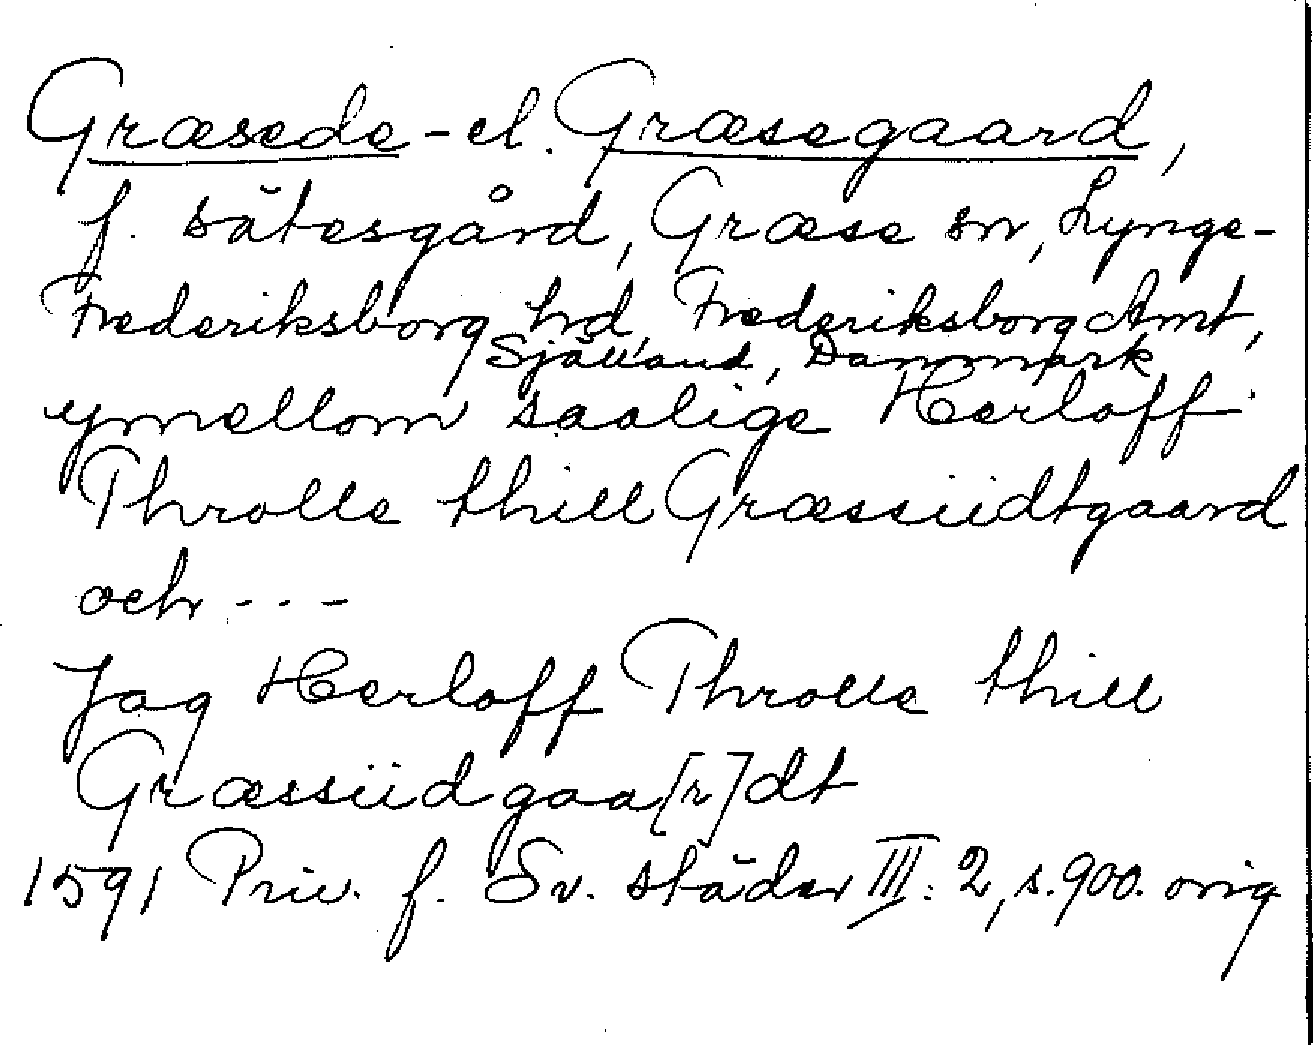 Græsede- el. Græsegaard,
f. sätesgård, Græse sn, Lynge-
Frederiksborg hd, Frederiksborg Amt,
Själland, Danmark
ymellom saalige Herloff
Throlle thill Græssiidtgaard
och - - -
Jag Herloff Throlle thill
Græssiidgaa[r]dt
1591 Priv. f. Sv. städer III: 2, s. 900. orig